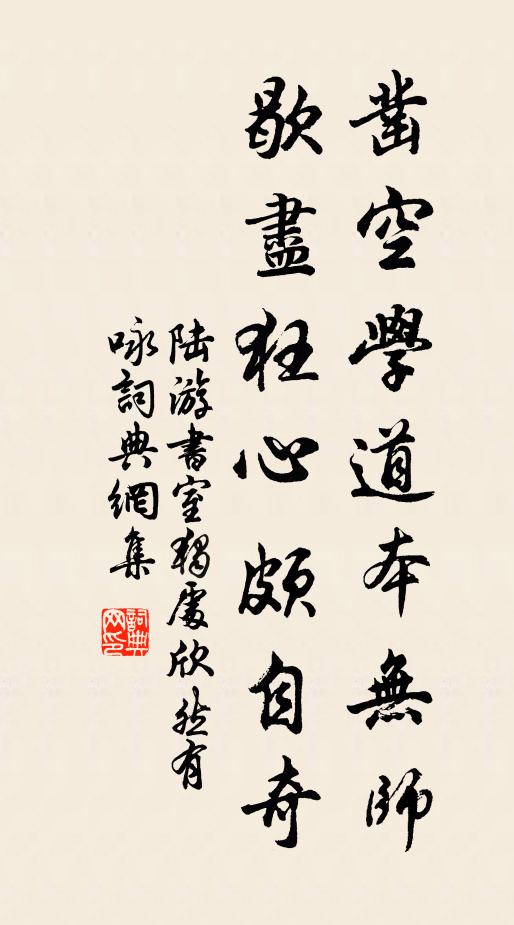 鑿空學道本無師
歇盡狂心頗自奇
陆游書室獨處欣然有
咏詞典網集
詞典
网印